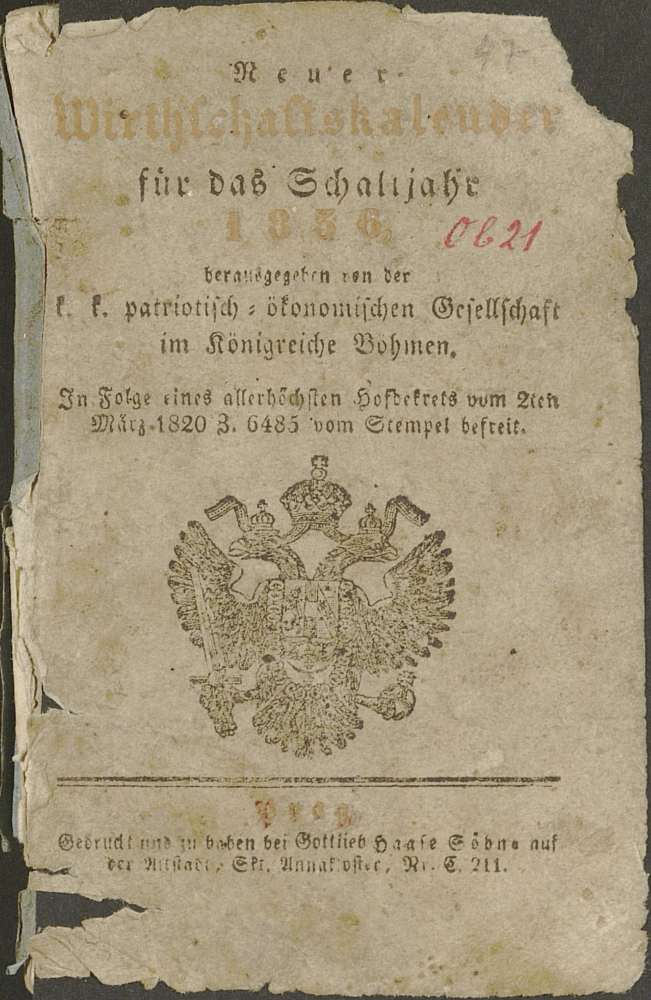 47
Neuer
Wirthschaftskalender
für das Schaltjahr
1836
Ob 21
herausgegeben von der
k. k. patriotisch = ökonomischen Gesellschaft
im Königreiche Böhmen.
In Folge eines allerhöchsten Hofdekrets vom 2ten
März 1820 Z. 6485 vom Stempel befreit.
Prag,
Gedruckt und zu haben bei Gottlieb Haase Söhne auf
der Altstadt, Skt. Annakloster, Nr. C. 211.